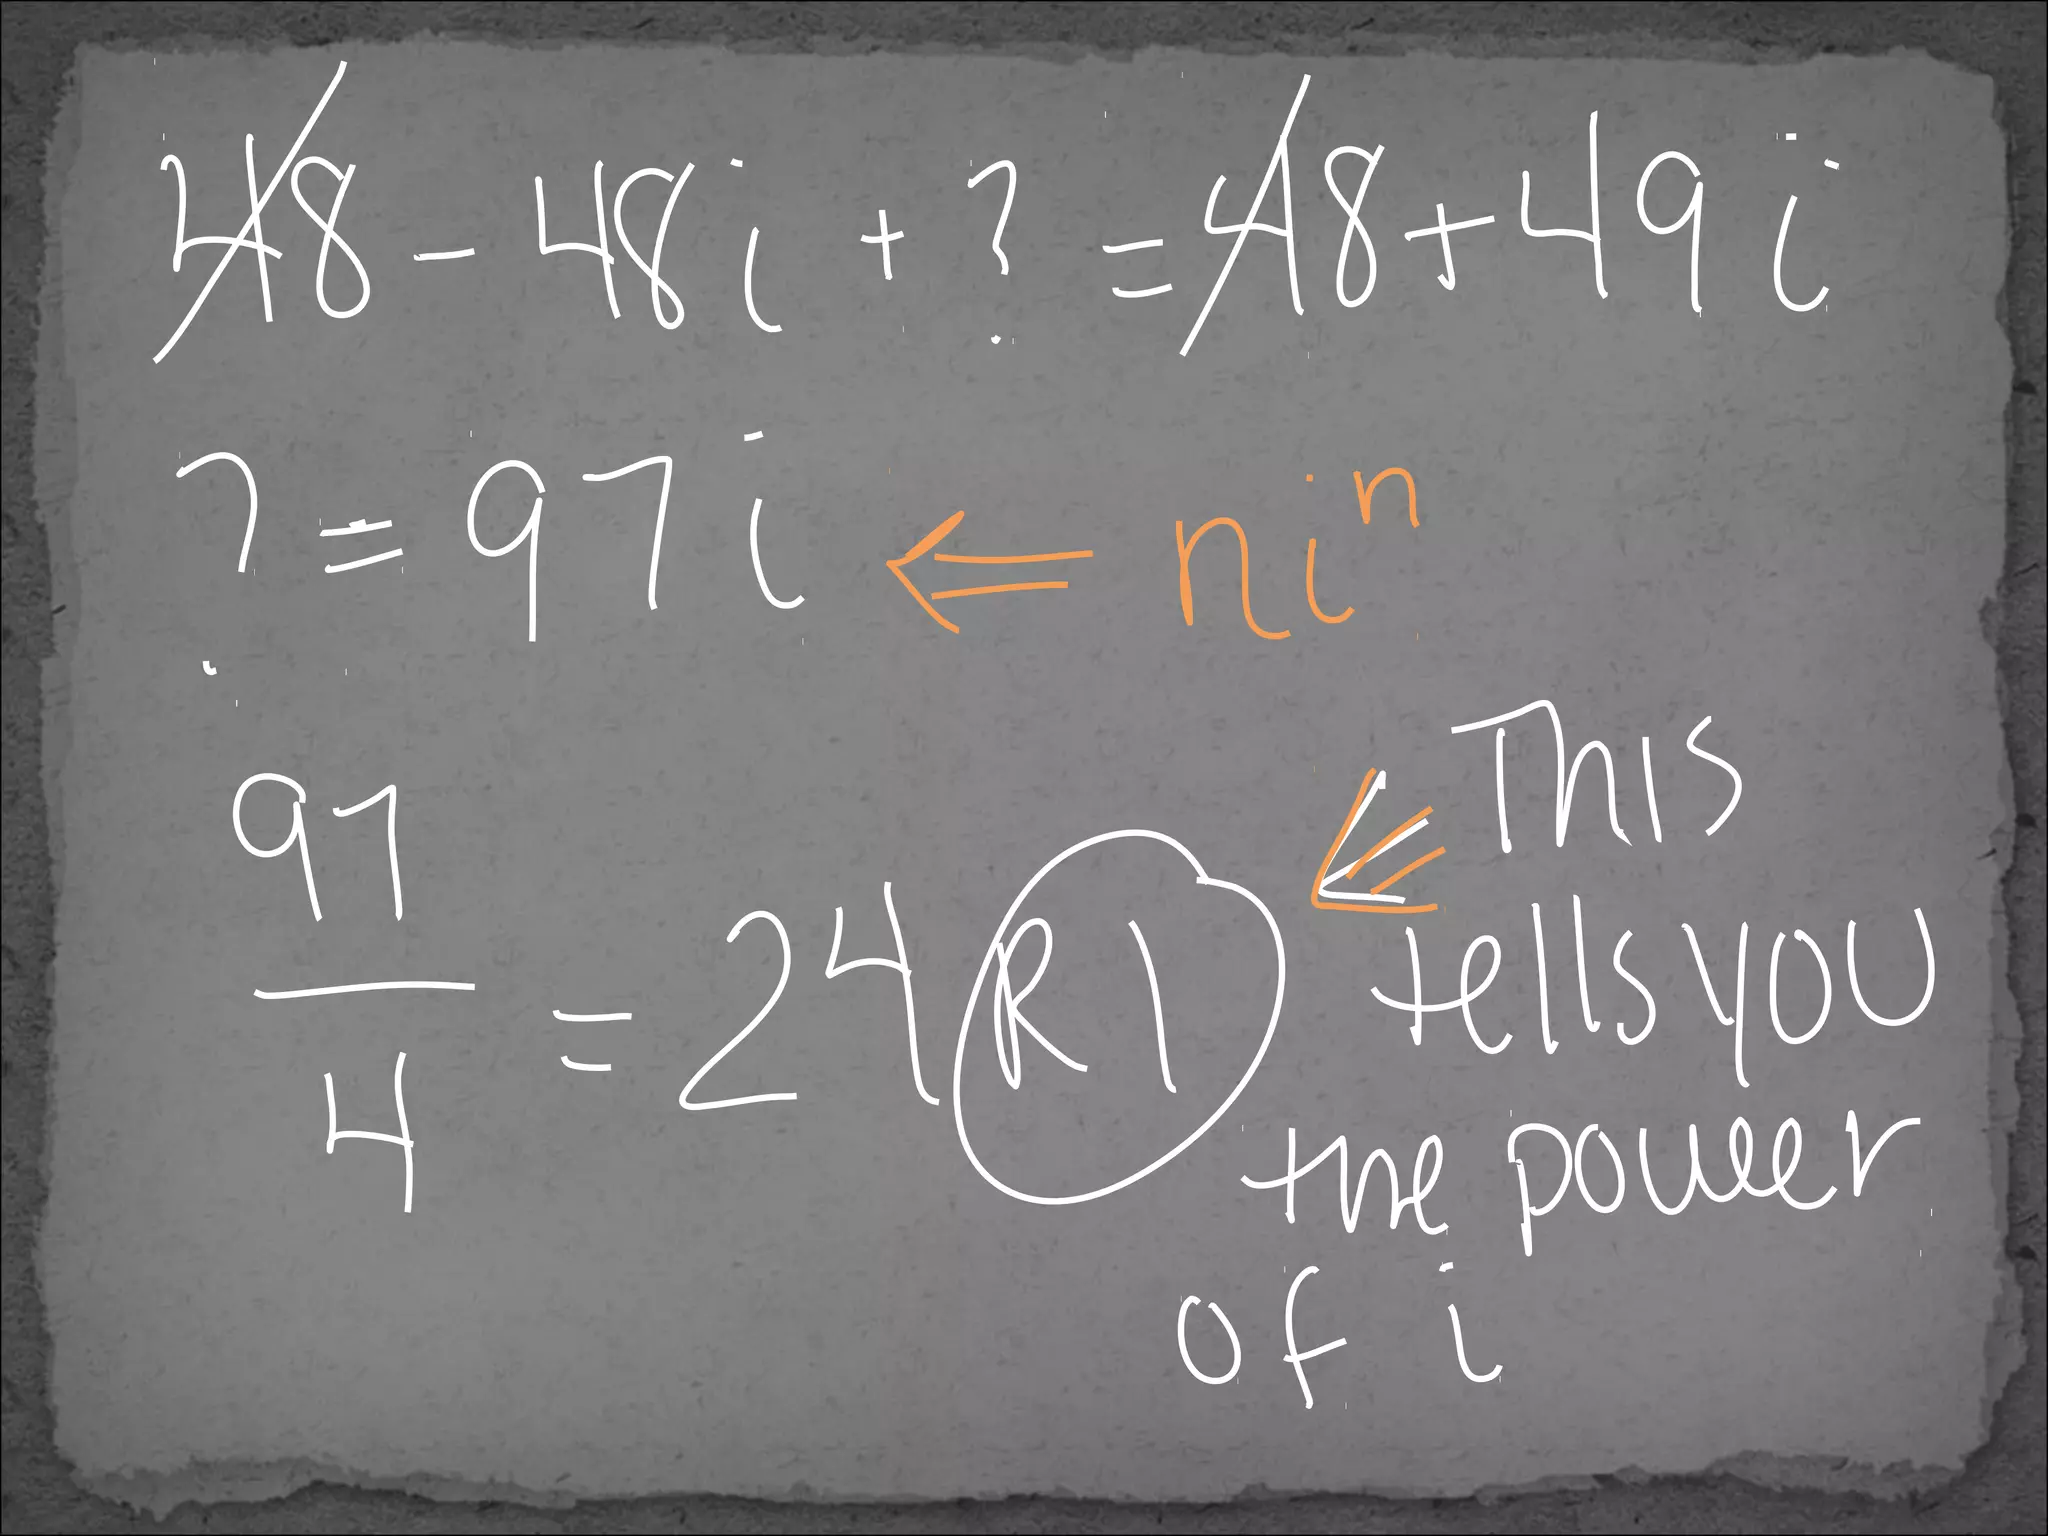 48 - 48i + ? = 48 + 49i
? = 97i ⇐ niⁿ
97/4 = 24 R1
This
tells you
the power
of i